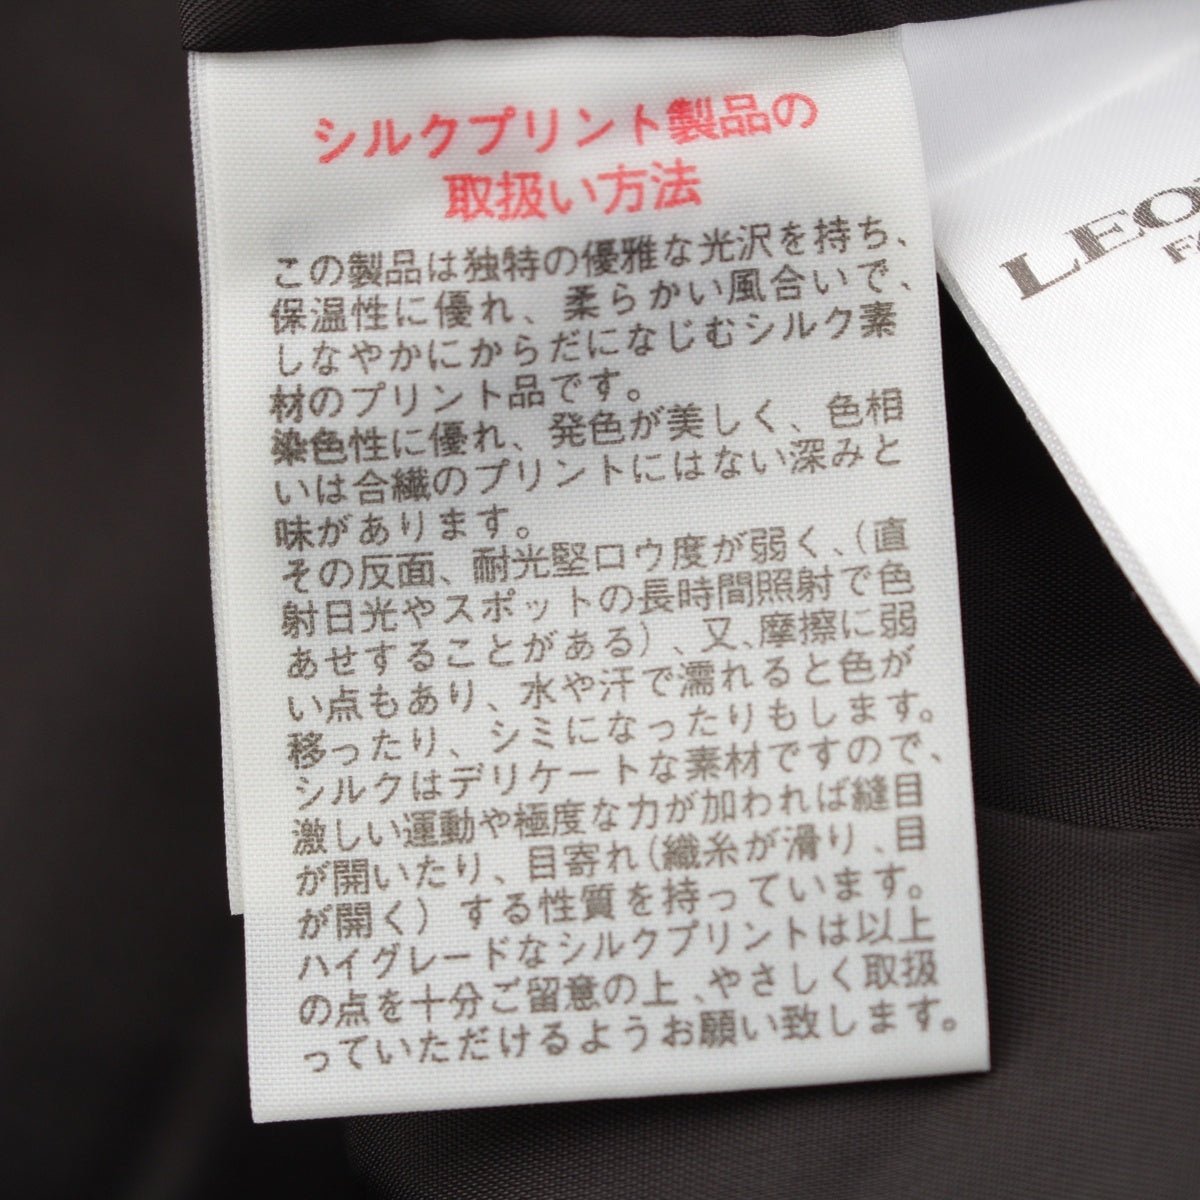 シルクプリント製品の
取扱い方法
この製品は独特の優雅な光沢を持ち、
保温性に優れ、柔らかい風合いで、
しなやかにからだになじむシルク素
材のプリント品です。
染色性に優れ、発色が美しく、色相
いは合繊のプリントにはない深みと
味があります。
その反面、耐光堅ロウ度が弱く、（直
射日光やスポットの長時間照射で色
あせすることがある）、又、摩擦に弱
い点もあり、水や汗で濡れると色が
移ったり、シミになったりもします。
シルクはデリケートな素材ですので、
激しい運動や極度な力が加われば縫目
が開いたり、目寄れ（織糸が滑り、目
が開く）する性質を持っています。
ハイグレードなシルクプリントは以上
の点を十分ご留意の上、やさしく取扱
っていただけるようお願い致します。